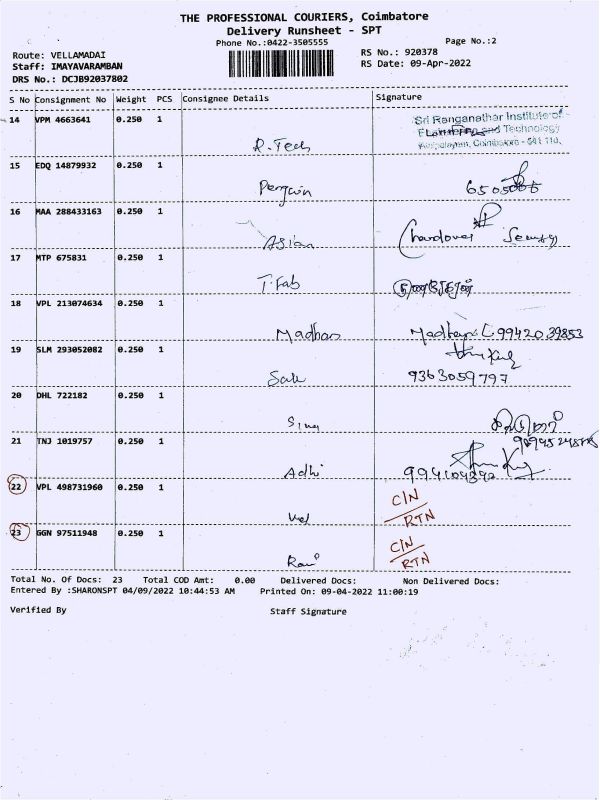 THE PROFESSIONAL COURIERS, Coimbatore
Delivery Runsheet - SPT
Phone No.:0422-3505555 Page No.:2
Route: VELLAMADAI RS No.: 920378
Staff: IMAYAVARAMBAN RS Date: 09-Apr-2022
DRS No.: DCJB92037802
S No Consignment No Weight PCS Consignee Details Signature
14 VPM 4663641 0.250 1 Sri Ranganathar Institute of
and Technology
Coimbatore - 641 110.
R.Tech
15 EDQ 14879932 0.250 1
Penguin
16 MAA 288433163 0.250 1
Asian
17 MTP 675831 0.250 1
T.Fab
18 VPL 213074634 0.250 1
Madhan 9942039853
19 SLM 293052082 0.250 1
9363059797
20 DHL 722182 0.250 1
21 TNJ 1019757 0.250 1
Adhi
22 VPL 498731960 0.250 1 C/N
RTN
Vel
23 GGN 97511948 0.250 1 C/N
RTN
Ravi
Total No. Of Docs: 23 Total COD Amt: 0.00 Delivered Docs: Non Delivered Docs:
Entered By :SHARONSPT 04/09/2022 10:44:53 AM Printed On: 09-04-2022 11:00:19
Verified By Staff Signature